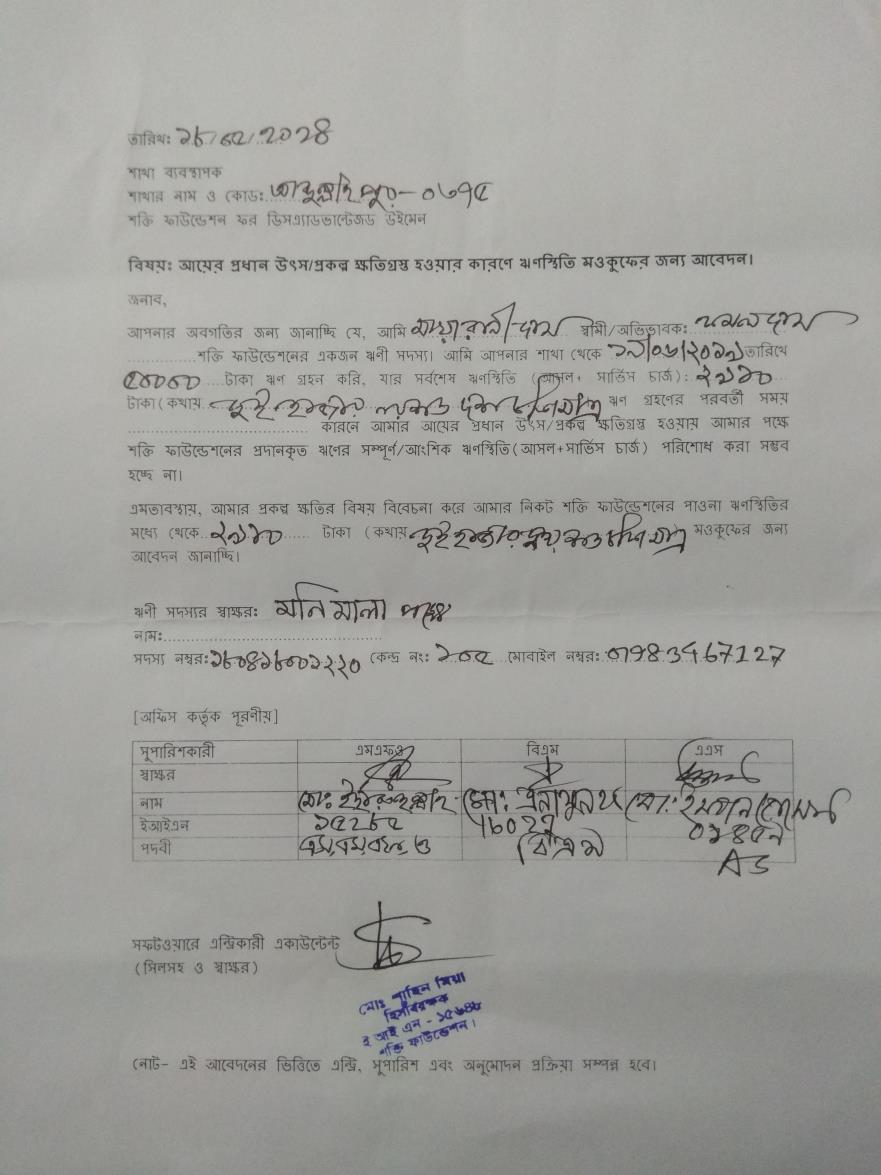 তারিখঃ ১৮/০৫/২০২৪
শাখা ব্যবস্থাপক
শাখার নাম ও কোডঃ - ০৬৭৫
শক্তি ফাউন্ডেশন ফর ডিসএ্যাডভান্টেজড উইমেন
বিষয়ঃ আয়ের প্রধান উৎস/প্রকল্প ক্ষতিগ্রস্ত হওয়ার কারণে ঋণস্থিতি মওকুফের জন্য আবেদন।
জনাব,
আপনার অবগতির জন্য জানাচ্ছি যে, আমি দাস স্বামী/অভিভাবকঃ দাস
শক্তি ফাউন্ডেশনের একজন ঋণী সদস্য। আমি আপনার শাখা থেকে তারিখে
৫০০০০ টাকা ঋণ গ্রহন করি, যার সর্বশেষ ঋণস্থিতি (আসল+ সার্ভিস চার্জ):
টাকা (কথায় দুই হাজার ঋণ গ্রহণের পরবর্তী সময়
কারনে আমার আয়ের প্রধান উৎস/প্রকল্প ক্ষতিগ্রস্ত হওয়ায় আমার পক্ষে
শক্তি ফাউন্ডেশনের প্রদানকৃত ঋণের সম্পূর্ণ/আংশিক ঋণস্থিতি(আসল+সার্ভিস চার্জ) পরিশোধ করা সম্ভব
হচ্ছে না।
এমতাবস্থায়, আমার প্রকল্প ক্ষতির বিষয় বিবেচনা করে আমার নিকট শক্তি ফাউন্ডেশনের পাওনা ঋণস্থিতির
মধ্যে থেকে টাকা (কথায় দুই হাজার মওকুফের জন্য
আবেদন জানাচ্ছি।
ঋণী সদস্যর স্বাক্ষরঃ মনি মালা
নামঃ
সদস্য নম্বরঃ কেন্দ্র নংঃ ১০৫ মোবাইল নম্বরঃ 01983467127
[অফিস কর্তৃক পূরণীয়]
সুপারিশকারী এমএফও বিএম এএস
স্বাক্ষর
নাম মোঃ মোঃ এনামুল হক মোঃ
ইআইএন ১৫২৮৫
পদবী বিএম AS
সফটওয়ারে এন্ট্রিকারী একাউন্টেন্ট
(সিলসহ ও স্বাক্ষর)
মোঃ শাহিন মিয়া
হিসাবরক্ষক
ই আই এন -
শক্তি ফাউন্ডেশন।
নোট- এই আবেদনের ভিত্তিতে এন্ট্রি, সুপারিশ এবং অনুমোদন প্রক্রিয়া সম্পন্ন হবে।